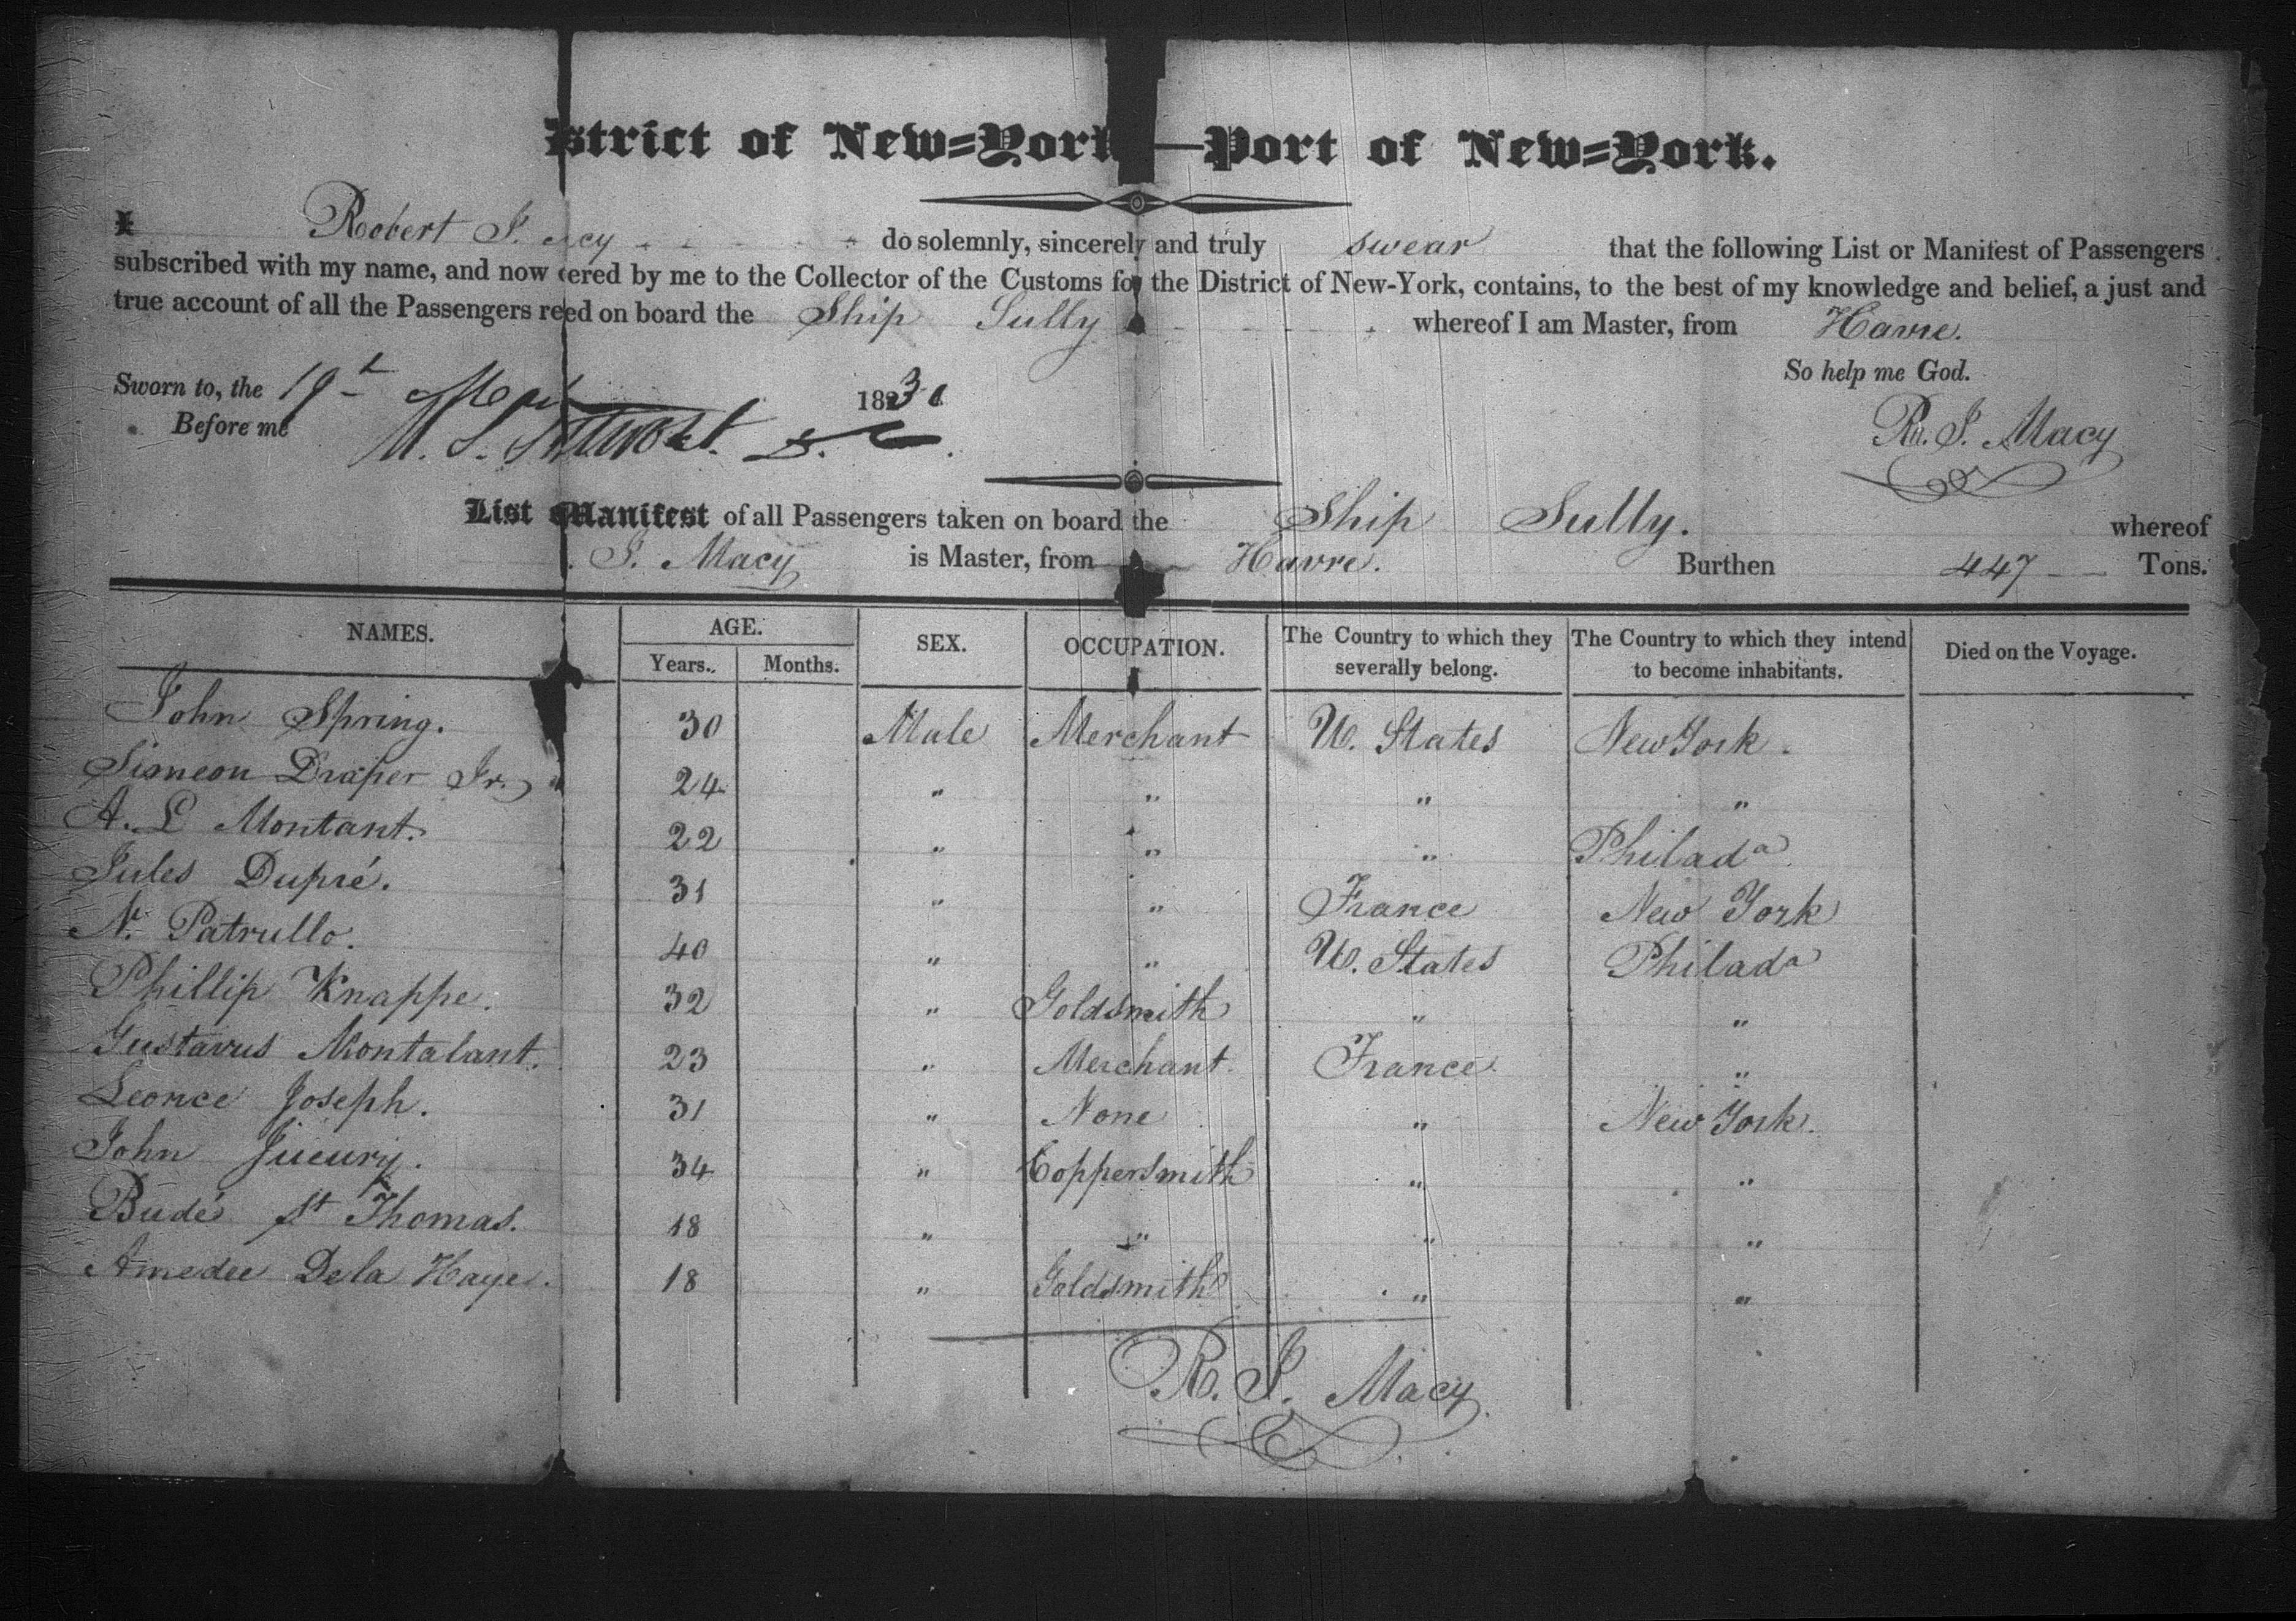 strict of New=York—Port of New=York.
I Robert J. acy do solemnly, sincerely and truly swear that the following List or Manifest of Passengers
subscribed with my name, and now ered by me to the Collector of the Customs for the District of New-York, contains, to the best of my knowledge and belief, a just and
true account of all the Passengers re ed on board the Ship Sully whereof I am Master, from Havre.
So help me God.
Sworn to, the 19th 1830
Before me
R. J. Macy
List Manifest of all Passengers taken on board the Ship Sully. whereof
J. Macy is Master, from Havre. Burthen 447 Tons.
NAMES. AGE. SEX. OCCUPATION. The Country to which they severally belong. The Country to which they intend to become inhabitants. Died on the Voyage.
Years. Months.
John Spring. 30 Male Merchant U. States New York.
Simeon Draper Jr. 24 " " " "
A. L Montant. 22 " " " Philada
Jules Dupré. 31 " " France New York
N. Patrullo. 40 " " U. States Philada
Phillip Knappe. 32 " Goldsmith " "
Gustavus Montalant. 23 " Merchant. France "
Leonce Joseph. 31 " None " New York.
John 34 " Coppersmith " "
Budé St Thomas. 18 " " " "
Amedee Dela Haye. 18 " Goldsmith " "
R. J. Macy